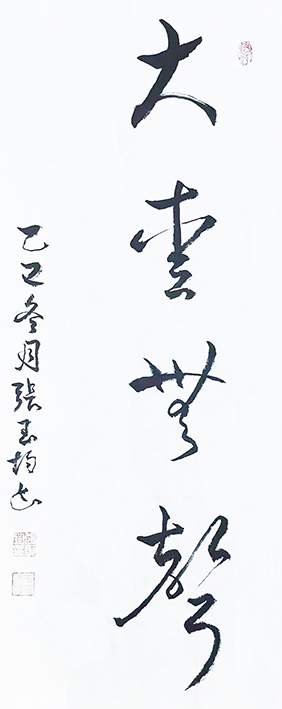 大愛無聲
乙巳冬月張玉均書